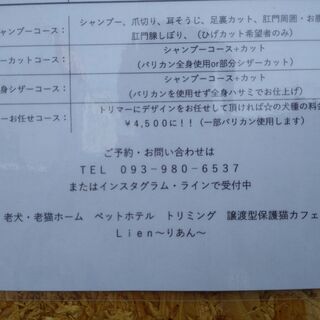 シャンプー、爪切り、耳そうじ、足裏カット、肛門周囲・お腹
ャンプーコース：
肛門腺しぼり、（ひげカット希望者のみ）
シャンプーコース+カット
ーカットコース：
（バリカン全身使用or部分シザーカット）
シャンプーコース+カット
身シザーコース：
（バリカンを使用せず全身ハサミでお仕上げ）
トリマーにデザインをお任せして頂ければ☆の犬種の料金
ーお任せコース：
￥4,500に！！（一部バリカン使用します）
ご予約・お問い合わせは
TEL 093-980-6537
またはインスタグラム・ラインで受付中
老犬・老猫ホーム ペットホテル トリミング 譲渡型保護猫カフェ
Lien～りあん～